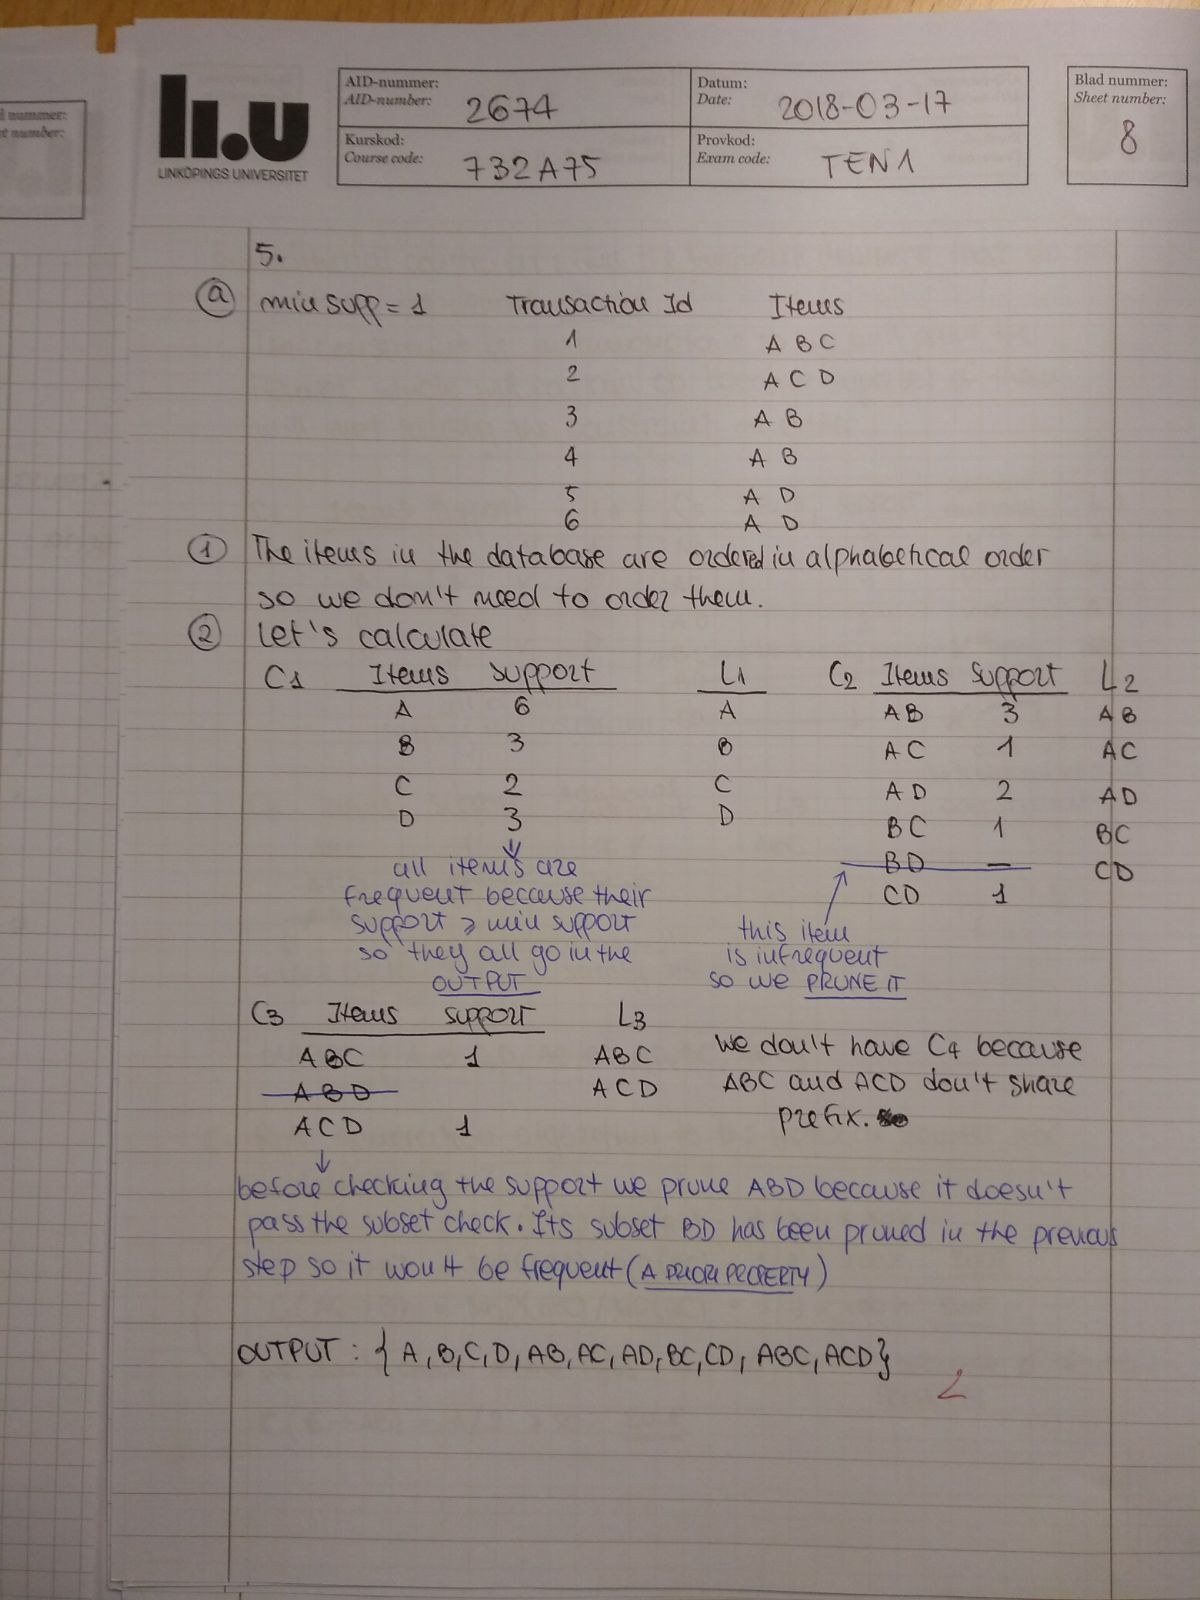 l nummer:
et number:
LI.U
LINKÖPINGS UNIVERSITET
AID-nummer:
AID-number: 2674
Datum:
Date: 2018-03-17
Blad nummer:
Sheet number:
8
Kurskod:
Course code: 732A75
Provkod:
Exam code: TEN1
5.
a min supp = 1 Transaction Id Items
1 A B C
2 A C D
3 A B
4 A B
5 A D
6 A D
1 The items in the database are ordered in alphabetical order
so we don't need to order them.
2 Let's calculate
C1 Items support L1 C2 Items Support L2
A 6 A AB 3 AB
B 3 B AC 1 AC
C 2 C AD 2 AD
D 3 D BC 1 BC
BD — CD
CD 1
all items are
frequent because their
support ≥ min support
so they all go in the
OUTPUT
this item
is infrequent
so we PRUNE IT
C3 Items support L3
ABC 1 ABC
ABD ACD
ACD 1
we don't have C4 because
ABC and ACD don't share
prefix.
before checking the support we prune ABD because it doesn't
pass the subset check. Its subset BD has been pruned in the previous
step so it won't be frequent (A PRIORI PROPERTY)
OUTPUT : { A, B, C, D, AB, AC, AD, BC, CD, ABC, ACD}